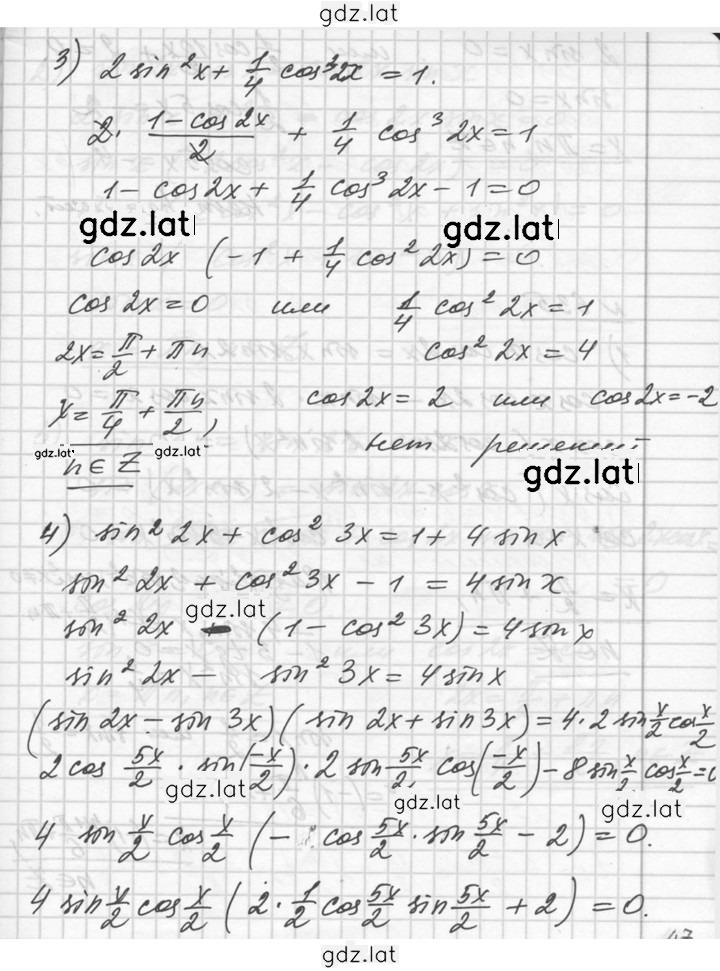 gdz.lat
3) 2 sin²x + 1/4 cos³2x = 1.
2 · (1 - cos 2x)/2 + 1/4 cos³ 2x = 1
1 - cos 2x + 1/4 cos³ 2x - 1 = 0
gdz.lat gdz.lat
cos 2x (-1 + 1/4 cos² 2x) = 0
cos 2x = 0 или 1/4 cos² 2x = 1
2x = π/2 + πn cos² 2x = 4
x = π/4 + πn/2, cos 2x = 2 или cos 2x = -2
gdz.lat gdz.lat нет решений
n ∈ Z gdz.lat
4) sin² 2x + cos² 3x = 1 + 4 sin x
sin² 2x + cos² 3x - 1 = 4 sin x
gdz.lat
sin² 2x - (1 - cos² 3x) = 4 sin x
sin² 2x - sin² 3x = 4 sin x
(sin 2x - sin 3x)(sin 2x + sin 3x) = 4 · 2 sin x/2 cos x/2
2 cos 5x/2 · sin(-x/2) · 2 sin 5x/2 cos(-x/2) - 8 sin x/2 cos x/2 = 0
gdz.lat gdz.lat gdz.lat
4 sin x/2 cos x/2 (- cos 5x/2 · sin 5x/2 - 2) = 0.
4 sin x/2 cos x/2 (2 · 1/2 cos 5x/2 sin 5x/2 + 2) = 0.
gdz.lat